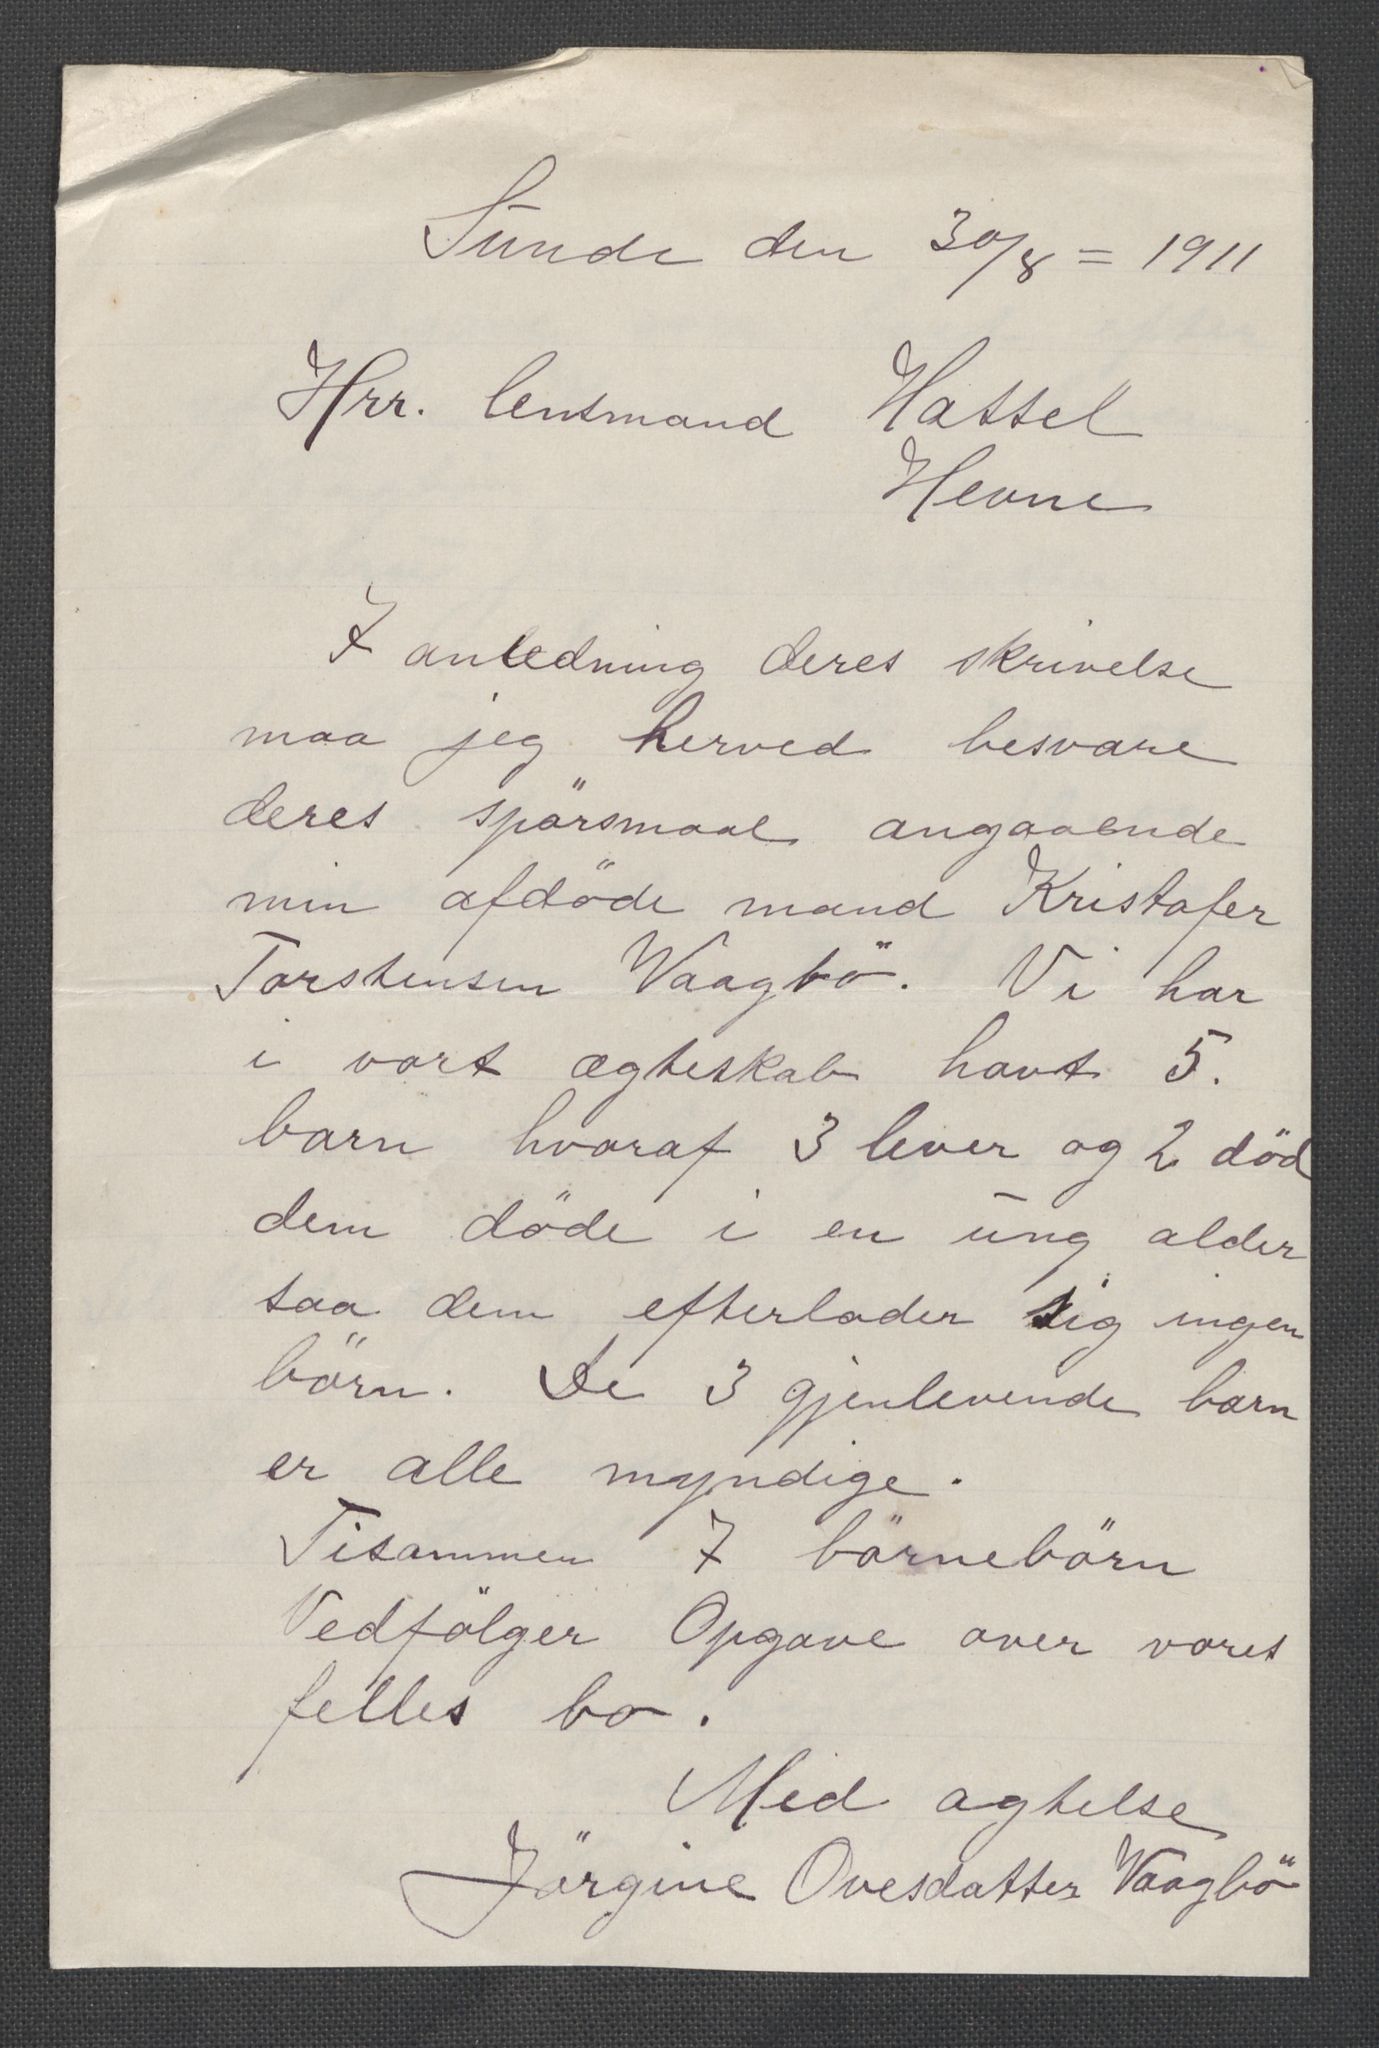 Sunde den 30/8 = 1911
Hrr. lensmand Hassel
Hevne
I anledning deres skrivelse
maa jeg herved besvare
deres spörsmaal angaaende
min afdöde mand Kristofer
Torstensen Vaagbö. Vi har
i vort ægteskab havt 5.
barn hvoraf 3 lever og 2 död
dem döde i en ung alder
saa dem efterlader sig ingen
börn. De 3 gjenlevende barn
er alle myndige.
Tisammen 7 börnebörn
Vedfölger Opgave over vores
felles bo.
Med agtelse
Jörgine Ovesdatter Vaagbö